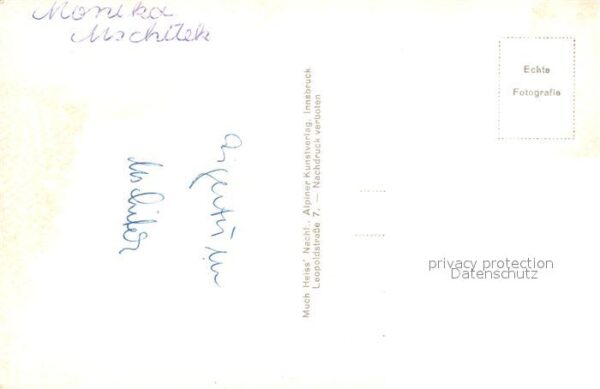 Monika
Mschitek
Echte
Fotografie
Much Heiss' Nachf., Alpiner Kunstverlag, Innsbruck
Leopoldstraße 7, — Nachdruck verboten
privacy protection
Datenschutz